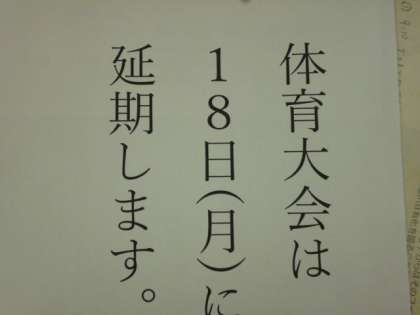 体育大会は
18日(月)に
延期します。